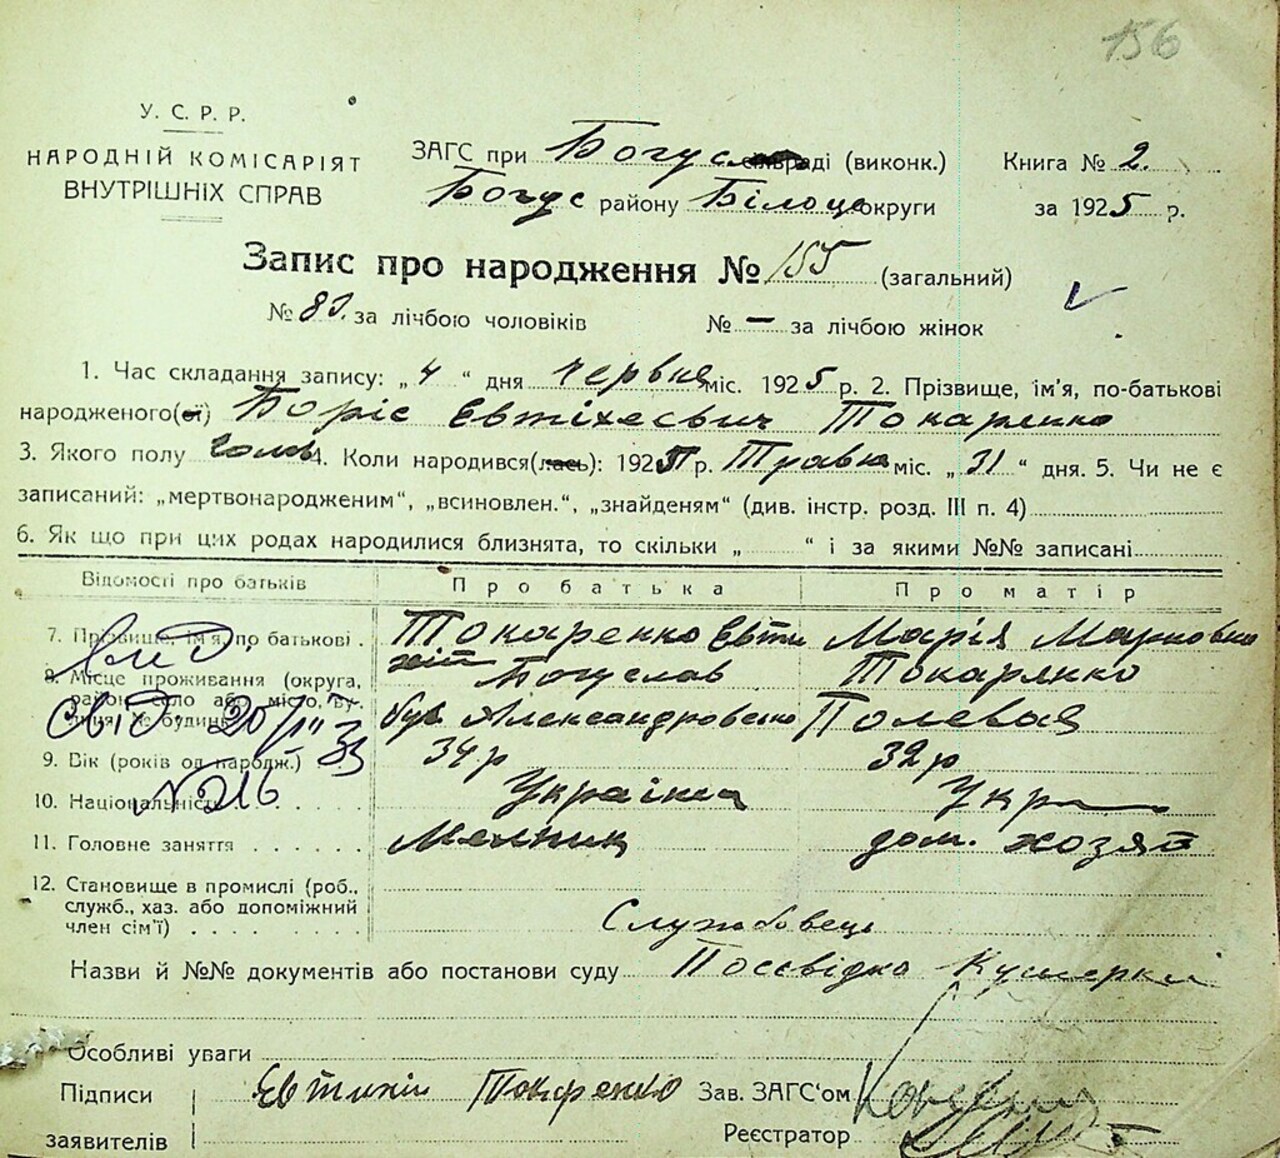 156
У. С. Р. Р.
НАРОДНІЙ КОМІСАРІЯТ
ВНУТРІШНІХ СПРАВ
ЗАГС при Богус сільраді (виконк.)
Богус району Білоце округи
Книга № 2.
за 1925 р.
Запис про народження № 155 (загальний)
№ 83. за лічбою чоловіків № — за лічбою жінок
1. Час складання запису: „4“ дня червня міс. 1925 р. 2. Прізвище, ім'я, по-батькові
народженого(ої) Боріс Євтіхєєвич Токаренко
3. Якого полу чолов 4. Коли народився(лась): 1925 р. Травня міс. „31“ дня. 5. Чи не є
записаний: „мертвонародженим“, „всиновлен.“, „знайденям“ (див. інстр. розд. III п. 4)
6. Як що при цих родах народилися близнята, то скільки „ “ і за якими №№ записані
Відомості про батьків Про батька Про матір
7. Прізвище, ім'я, по батькові . Токаренко Євти хій Марія Марковна Токаренко
8. Місце проживання (округа, район, село або місто, вулиця № будинку) Богуслав
вул Александровско Полевая
9. Вік (років од народж.) 34 р 32 р
10. Національність . . . . . Українка Укр
11. Головне заняття . . . . . . Мелник дом. хозяй
12. Становище в промислі (роб.,
служб., хаз. або допоміжний
член сім'ї) . . . . . . . Службовець
вид. свід. 20/III 33
№ 216
Назви й №№ документів або постанови суду Посвідка Кушерки
Особливі уваги
Підписи Євтихий Токаренко Зав. ЗАГС'ом
заявителів Реєстратор